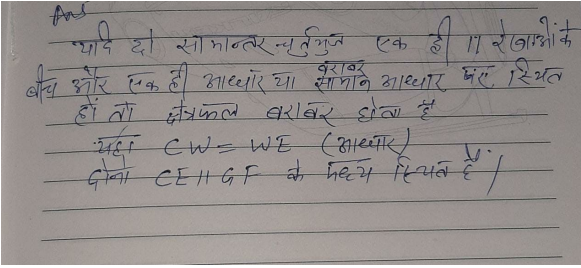 Ans
यदि दो सामान्तर चर्तुभुज एक ही || रेखाओं के
बीच और एक ही आध्धार या बराबर सामान आध्धार पर स्थित
हों तो क्षेत्रफल बराबर होता है
यहां CW = WE (आध्धार)
दोनो CE || GF के मध्य स्थित है।